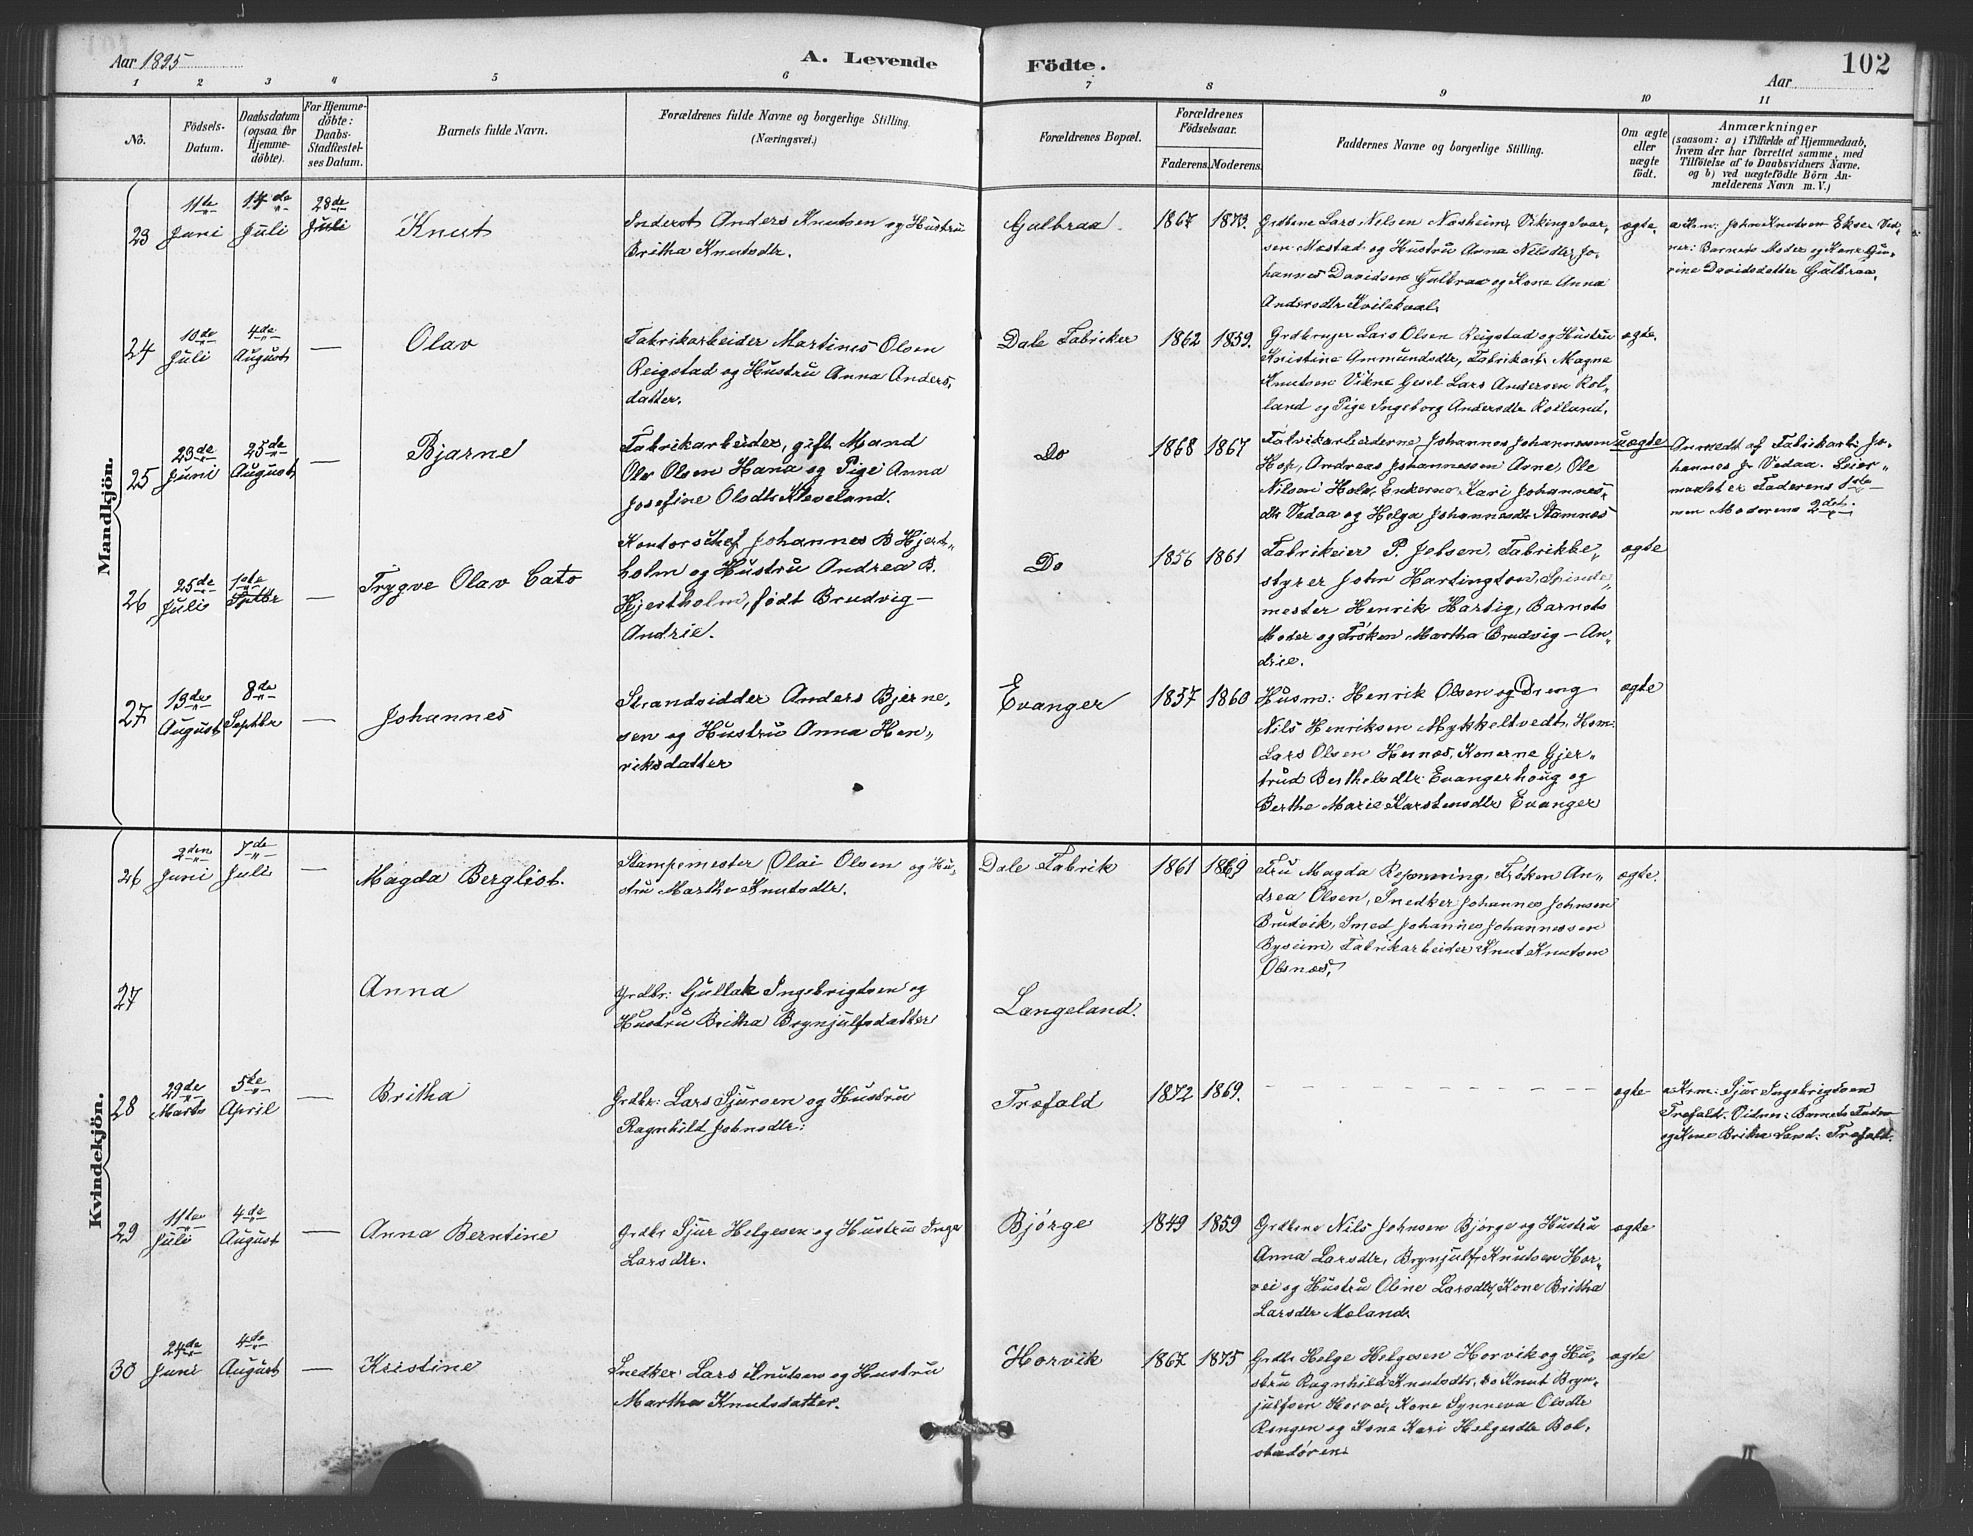 Aar 1895
A. Levende
Födte.
Aar
102
1 2 3 4 5 6 7 8 9 10 11
No.
Födsels-
Datum.
Daabsdatum
(ogsaa for
Hjemme-
döbte).
For Hjemme-
döbte:
Daabs-
Stadfæstel-
ses Datum.
Barnets fulde Navn.
Forældrenes fulde Navne og borgerlige Stilling.
(Næringsvei.)
Forældrenes Bopæl.
Forældrenes
Födselsaar.
Faderens. Moderens.
Faddernes Navne og borgerlige Stilling.
Om ægte
eller
uægte
födt.
Anmærkninger
(saasom: a) i Tilfælde af Hjemmedaab,
hvem der har forrettet samme, med
Tilföielse af to Daabsvidners Navne.
og b) ved uægtefödte Börn An-
melderens Navn m. V.)
Mandkjön.
23
11te
Juni
14de
Juli
28de
Juli
Knut
Inderst Anders Knutsen og Hustru
Britha Knutsdtr.
Gulbraa
1867 1873.
Grdbrne Lars Nilsen Næsheim, Viking Ivar-
sen Mæstad og Hustru Anna Nilsdtr, Jo-
hannes Davidsen Gulbraa og Kone Anna
Andersdtr Kvilekval
ægte.
a Krm: John Knutsen Ekse Vid-
ner: Barnets Moder og Kone Gu-
rine Davidsdatter Gulbraa.
24
10de
Juli
4de
August
—
Olav
Fabrikarbeider Martines Olsen
Reigstad og Hustru Anna Anders,
datter.
Dale Fabriker
1862 1859.
Grdbruger Lars Olsen Reigstad og Hustru
Kristine Ammundsdtr, Fabrikarb. Magne
Knutsen Vikne Gesel Lars Andersen Rol-
land og Pige Ingeborg Andersdtr Rolland.
ægte.
25
23de
Juni
25de
August
—
Bjarne
Fabrikarbeider, gift Mand
Olv Olsen Hana og Pige Anna
Josefine Olsdtr Kleveland.
Do
1868 1867
Fabrikarbeiderne Johannes Johannessen
Hop, Andreas Johannessen Arne, Ole
Nilsen Hole, Enkerne Kari Johannes-
dtr Vedaa og Helga Johannesdtr Stamnes
uægte
Anmeldt af Fabrikarb: Jo-
hannes Jr Vedaa. Leier-
maalet er Faderens 1ste
men Moderens 2det.
26
25de
Juli
1ste
Septbr
—
Trygve Olav Cato
Kontorschef Johannes B Hjert-
holm og Hustru Andrea B.
Hjertholm, født Brudvig—
Andrie.
Do
1856 1861
Fabrikeier P. Jebsen, Fabrikbe-
styrer John Hartington, Spinde-
mester Henrik Hartig, Barnets
Moder og Frøken Martha Brudvig—An-
drie.
ægte
27
13de
August
8de
Septbr
—
Johannes
Strandsidder Anders Bjerne,
sen og Hustru Anna Hen-
riksdatter
Evanger
1857 1860
Husm: Henrik Olsen og Dreng
Nils Henriksen Mykkeltvedt, Hsm:
Lars Olsen Hernes, Konerne Gjer-
trud Berthelsdtr: Evangerhoug og
Berthe Marie Karstensdtr Evanger
ægte
Kvindekjön.
26
2den
Juni
7de
Juli
—
Magda Bergliot.
Stampemester Olai Olsen og Hu-
stru Martha Knutsdtr.
Dale Fabrik
1861 1869
Fru Magda Rejonning, Frøken An-
drea Olsen, Snedker Johannes Johnsen
Brudvik, Smed Johannes Johannessen
Byseim, Fabrikarbeider Knut Knutsen
Olsnes,
ægte.
27
Anna
Grdbr: Gullak Ingebrigtsen og
Hustru Britha Brynjulfsdatter
Langeland.
28
29de
Marts
5te
April
—
Britha
Grdbr: Lars Sjursen og Hustru
Ragnhild Johnsdtr:
Træfald
1872 1869.
ægte
a Krm: Sjur Ingebrigtsen
Træfald. Vidner: Barnets Fader
og Kone Britha Larsd: Træfald.
29
11te
Juli
4de
August
—
Anna Berntine
Grdbr Sjur Helgesen og Hustru Inga
Larsdtr.
Bjørge
1849 1859
Grdbrne Nils Johnsen Bjørge og Hustru
Anna Larsdtr, Brynjulf Knutsen Hor-
vei og Hustru Oline Larsdtr, Kone Britha
Larsdtr Mæland
ægte
30
24de
Juni
4de
August
—
Kristine
Snedker Lars Knutsen og Hustru
Martha Knutsdatter.
Horvik
1867 1875
Grdbr Helge Helgesen Horvik og Hu-
stru Ragnhild Knutsdtr, do Knut Bryn-
julfsen Horvei, Kone Synneva Olsdtr
Ringen og Kone Kari Helgesdtr Bol-
stadøren
ægte